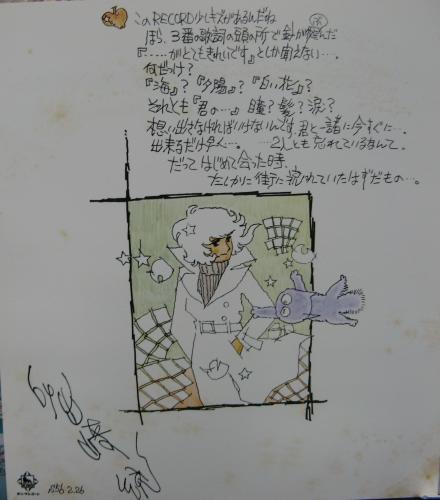 このRECORD少しキズがあるんだね
ほら、3番の歌詞の頭の所で針が飛んだ
『……がとてもきれいです』としか聞えない…。
何だっけ?
『海』?『夕陽』?『白い花』?
それとも『君の…』瞳?髪?涙?
想い出さなければいけないんです、君と一諸に今すぐに…。
出来るだけ早く…。 ……2人とも忘れているなんて。
だってはじめて会った時、
たしかに街に流れていたはずだもの…。
1956.2.26